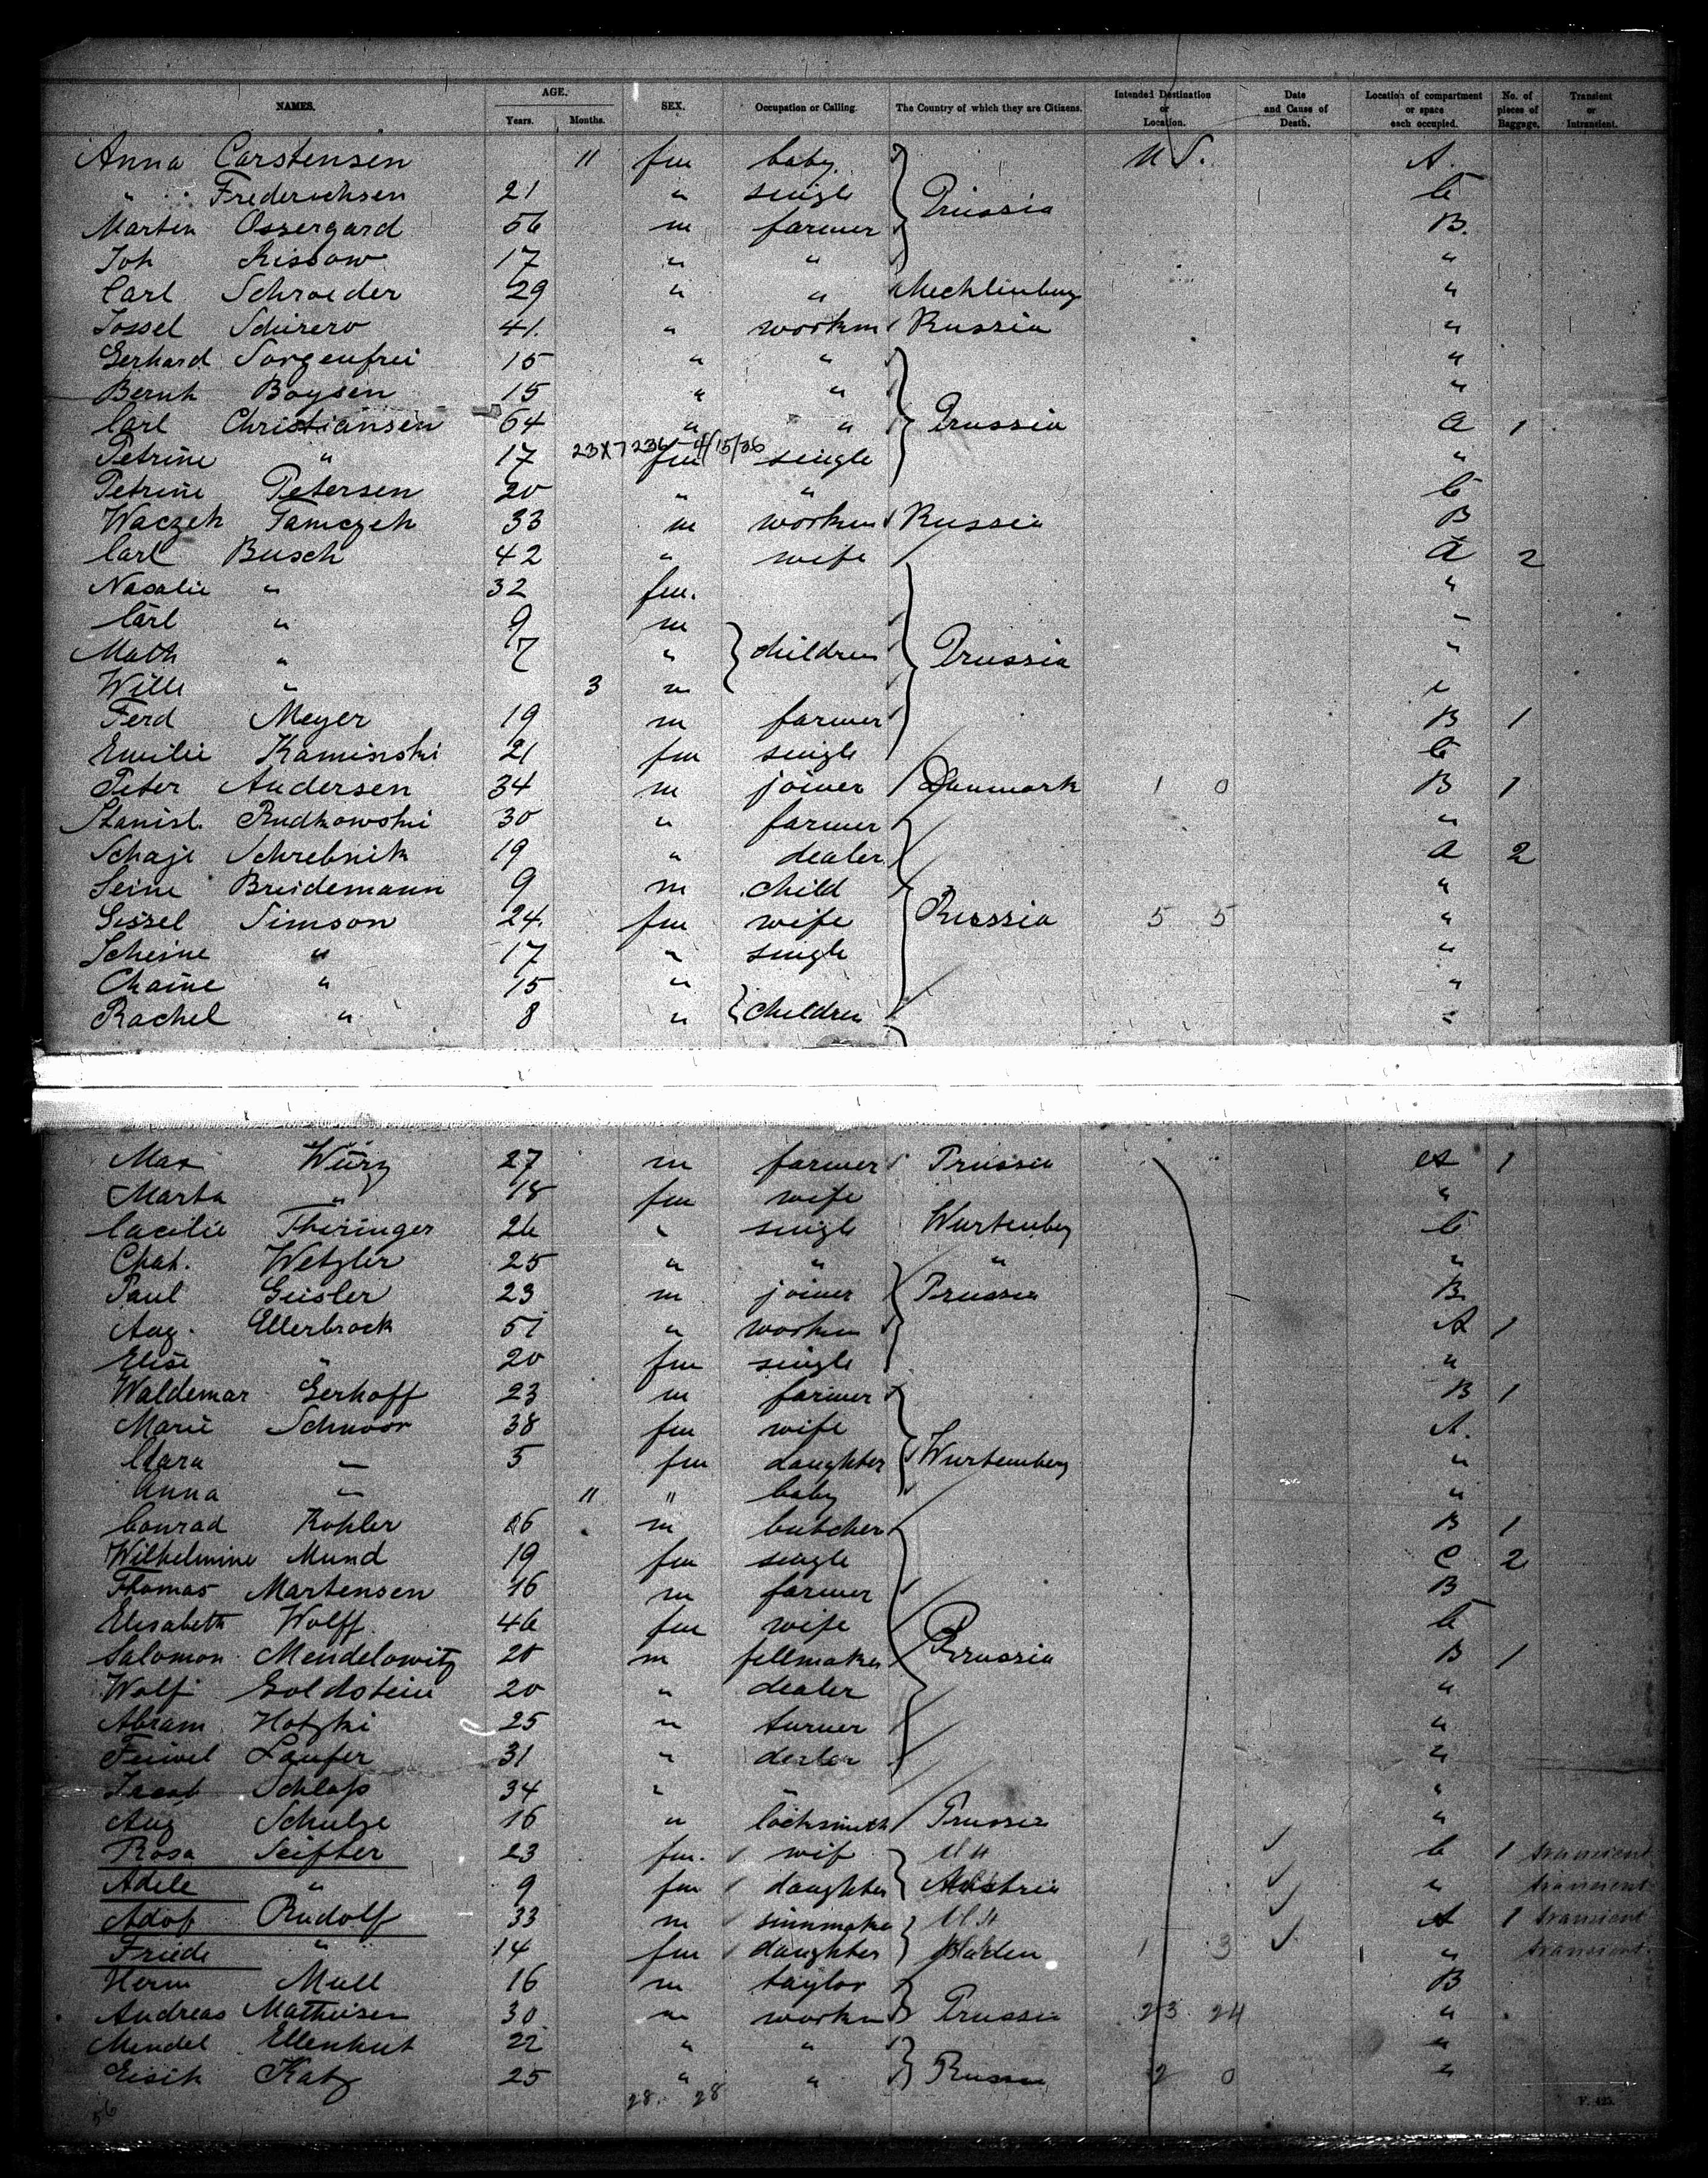 NAMES. AGE. Years. Months. SEX. Occupation or Calling. The Country of which they are Citizens. Intended Destination or Location. Date and Cause of Death. Location of compartment or space each occupied. No. of pieces of Baggage. Transient or Intransient.
Anna Carstensen 11 fm baby U.S. A.
" Frederichsen 21 " single Prussia C
Marten Ossergard 56 m farmer B.
Joh Rissow 17 " " "
Carl Schroeder 29 " " Mecklinburg "
Jossel 41. " workm Russia "
Gerhard Sorgenfrei 15 " " "
Bernh Boysen 15 " " "
Carl Christiansen 64 " " Prussia A 1
Petrine " 17 23X7236 - 4/15/36 fm single "
Petrine Petersen 20 " " C
Waczek Tamczek 33 m workm Russia B
Carl Busch 42 " wife A 2
Nasalie " 32 fm. "
Carl " 9 m "
Math " 7 " children Prussia "
Willi " 3 m "
Ferd Meyer 19 m farmer B 1
Emilie Kaminski 21 fm single C
Peter Andersen 34 m joiner Danmark 1 0 B 1
Stanisl. Rudkowski 30 " farmer "
Schaje Schrebnik 19 " dealer A 2
Seine Breidemann 9 m child "
Sissel Simson 24. fm wife Russia 5 5 "
Scheine " 17 " single "
Chaine " 15 " "
Rachel " 8 " children "
Max Würz 27 m farmer Prussia A 1
Marta " 18 fm wife "
Cacilie Theringer 26 " single Wurtenberg C
Chat. Wetzler 25 " " " "
Paul Geisler 23 m joiner Prussia B
Aug. Ellerbrock 51 " workm A 1
Elise " 20 fm single "
Waldemar Gerhoff 23 m farmer B 1
Marie Schnoor 38 fm wife A.
Clara " 5 fm daughter Wurtemberg "
Anna " 11 " baby "
Conrad Kohler 16 m butcher B 1
Wilhelmine Mund 19 fm single C 2
Thomas Martensen 16 m farmer B
Elisabeth Wolff 46 fm wife C
Salomon Mendelowitz 20 m fellmaker Prussia B 1
Wolf Goldstein 20 " dealer "
Abram Hotzki 25 " turner "
Feiwel Laufer 31 " dealer "
Jacob Schlaß 34 " "
Aug Schulze 16 " locksmith Prussia "
Rosa Seifter 23 fm. wife C 1 transient
Adele " 9 fm daughter Austria " transient
Adof Rudolf 33 m A 1 transient
Friede " 14 fm daughter Baden 1 3 " transient
Herm Mull 16 m taylor B
Andreas Mathiesen 30 m workm Prussia 23 24 "
Mendel Ellenkut 22 " " "
Eisik Katz 25 " " Russia 2 0 "
56 28. 28 F. 425.